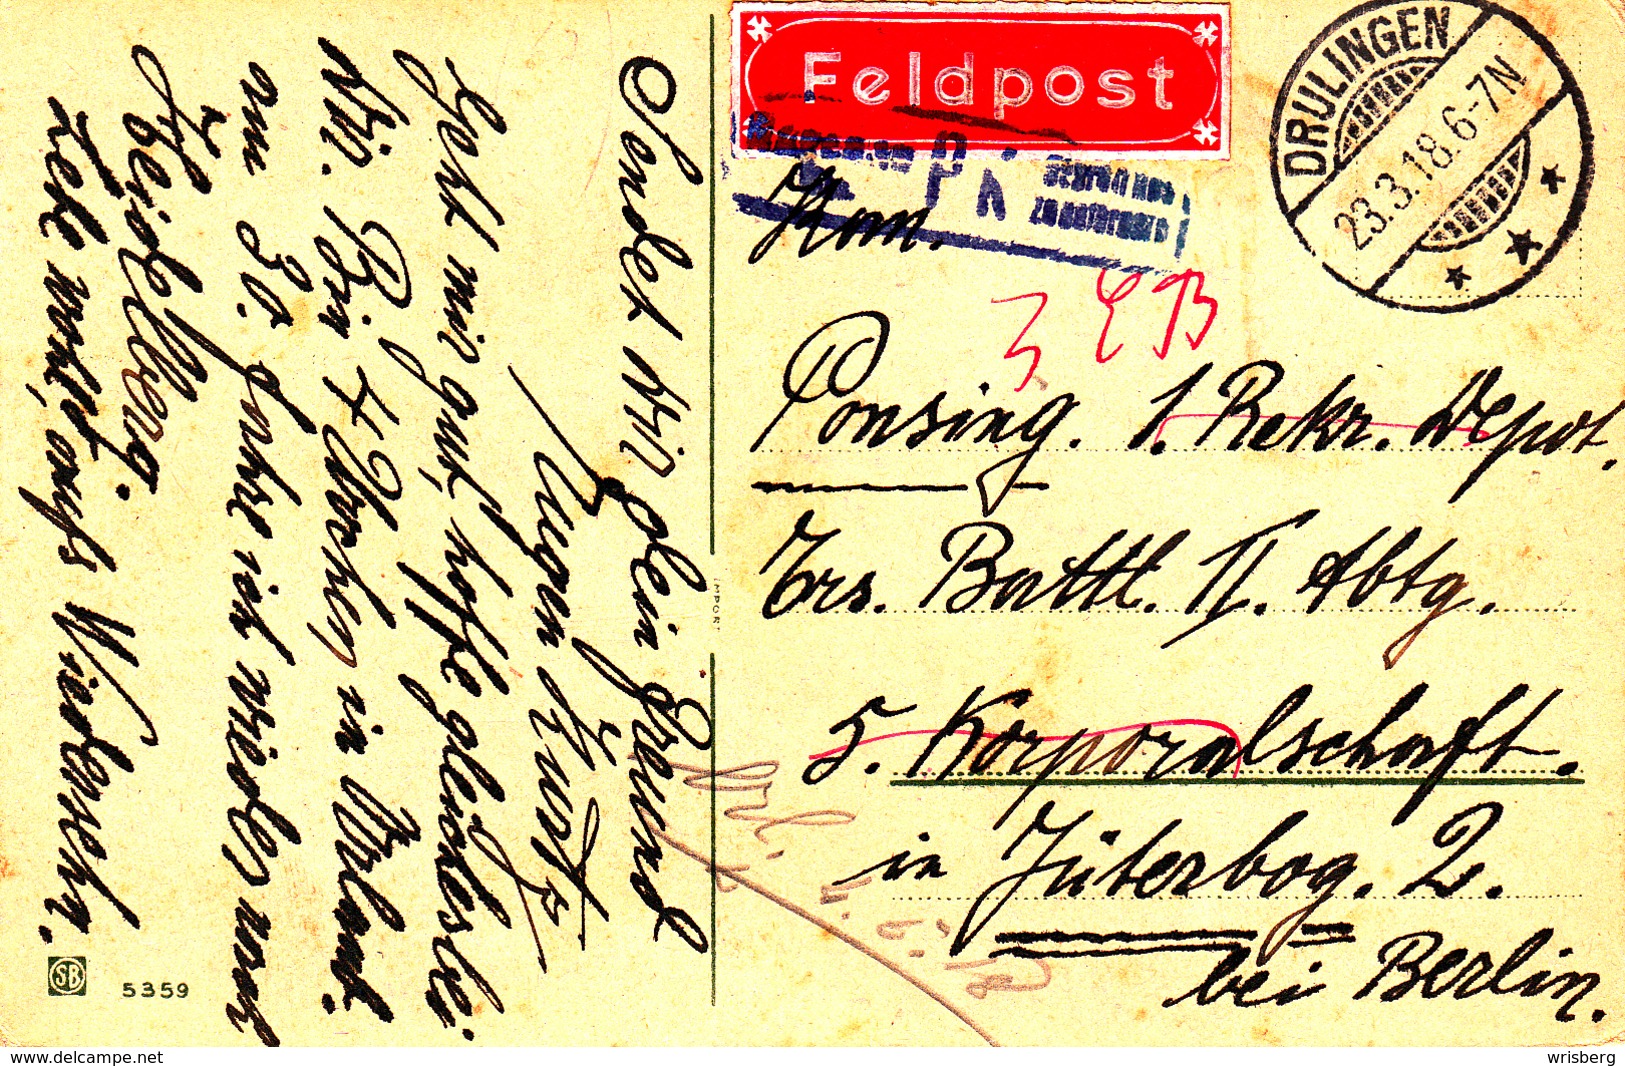 Feldpost
DRULINGEN
23.3.18.6-7N
Kan.
3 EB
Ponsing. 1. Rekr. Depot.
Ers. Battl. II. Abtg.
5. Korporalschaft.
in Jüterbog. 2.
bei Berlin.
Geht mir gut, hoffe gleiches bei
Dir. Bin 4 Wochen in Urlaub.
am 30. fahre ich wieder nach
Heidelberg.
Lebe wohl, aufs Wiedersehn.
Sendet Dir dein Freund
Eugen
IMPORT
SB
5359
www.delcampe.net
wrisberg